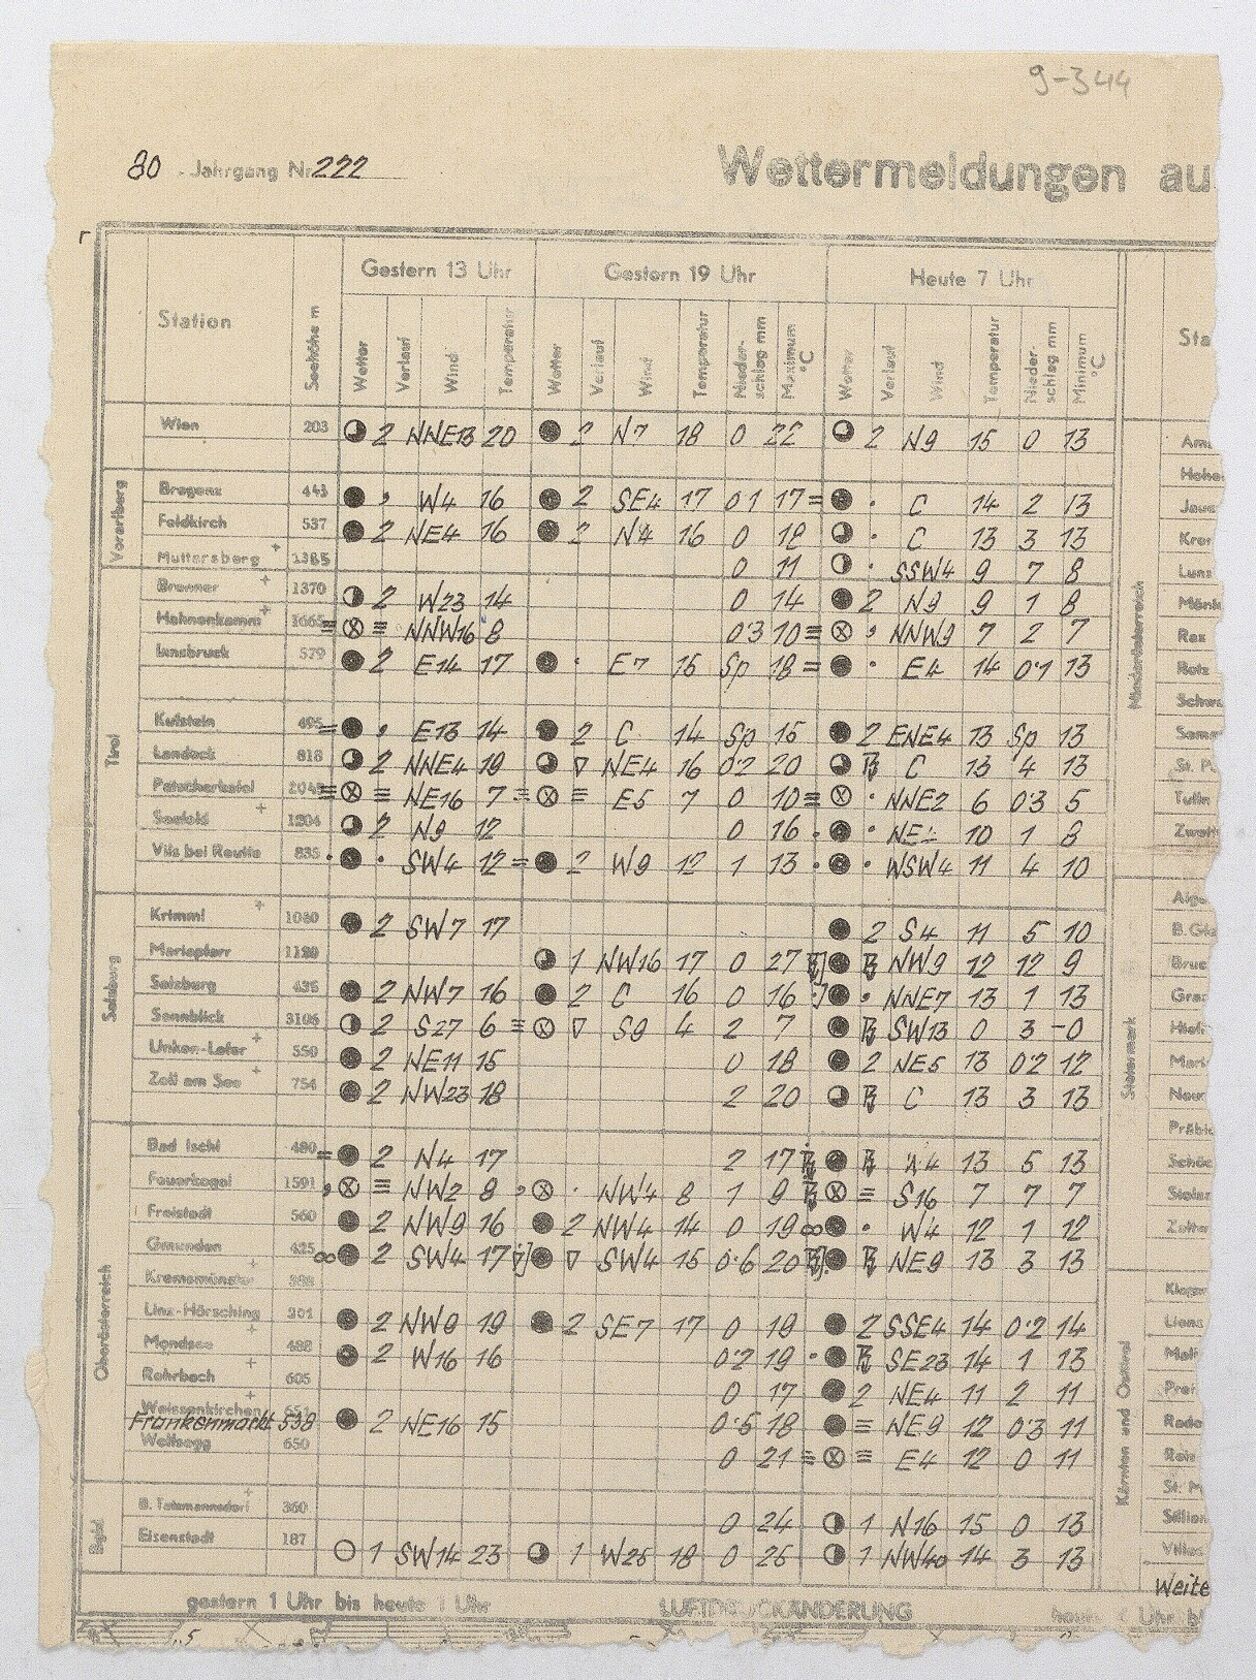 9-344
80. Jahrgang Nr. 222
Wettermeldungen au
Station Seehöhe m Gestern 13 Uhr Gestern 19 Uhr Heute 7 Uhr Sta
Wetter Verlauf Wind Temperatur Wetter Verlauf Wind Temperatur Nieder-schlag mm Maximum °C Wetter Verlauf Wind Temperatur Nieder-schlag mm Minimum °C
Wien 203 2 NNE13 20 2 N7 18 0 22 2 N9 15 0 13
Vorarlberg
Bregenz 443 , W4 16 2 SE4 17 01 17 = . C 14 2 13
Feldkirch 537 2 NE4 16 2 N4 16 0 18 . C 13 3 13
Muttersberg + 0 11 . SSW4 9 7 8
Tirol
Brenner + 1370 2 W23 14 0 14 2 N9 9 1 8
Hahnenkamm + 1665 ≡ ≡ NNW16 8 0·3 10 ≡ , NNW9 7 2 7
Innsbruck 579 2 E14 17 . E7 15 Sp 18 = . E4 14 0·1 13
Kufstein 495 = , E13 14 2 C 14 Sp 15 2 ENE4 13 Sp 13
Landeck 818 2 NNE4 19 ▽ NE4 16 0·2 20 C 13 4 13
Patscherkofel ≡ ≡ NE16 7 ≡ ≡ E5 7 0 10 ≡ . NNE2 6 0·3 5
Seefeld + 1204 2 N9 12 0 16 . . 10 1 8
Vils bei Reutte 835 . . SW4 12 = 2 W9 12 1 13 . . WSW4 11 4 10
Salzburg
Krimml + 2 SW7 17 2 S4 11 5 10
Mariapfarr 1 NW16 17 0 27 NW9 12 12 9
Salzburg 435 2 NW7 16 2 C 16 0 16 . NNE7 13 1 13
Sonnblick 3106 2 S27 6 ≡ ▽ S9 4 2 7 SW13 0 3 -0
Unken-Lofer + 550 2 NE11 15 0 18 2 NE5 13 0·2 12
Zell am See + 754 2 NW23 18 2 20 C 13 3 13
Oberösterreich
Bad Ischl 480 = 2 N4 17 2 17 13 5 13
Feuerkogel 1591 , ≡ NW2 8 , . NW4 8 1 9 ≡ S16 7 7 7
Freistadt 560 2 NW9 16 2 NW4 14 0 19 ∞ . W4 12 1 12
Gmunden 425 ∞ 2 SW4 17 ▽ SW4 15 0·6 20 NE9 13 3 13
Kremsmünster +
Linz-Hörsching 2 19 2 SE7 17 0 19 2 SSE4 14 0·2 14
Mondsee + 2 W16 16 0·2 19 . SE23 14 1 13
Rohrbach + 605 0 17 2 NE4 11 2 11
Weissenkirchen + 651
Frankenmarkt 538 2 NE16 15 0·5 18 ≡ NE9 12 0·3 11
Wolfsegg 650 0 21 ≡ ≡ E4 12 0 11
Bgld
B. Tatzmannsdorf + 360 0 24 1 N16 15 0 13
Eisenstadt 187 1 SW14 23 1 W25 18 0 25 1 NW40 14 3 13
Niederösterreich
Hohe
Kre
Lunz
Mönk
Rax
Retz
Schw
St. P
Tulln
Zwett
Steiermark
B. Gle
Bruc
Graz
Mari
Neum
Präbic
Schöc
Stolz
Zeltw
Kärnten und Osttirol
Klagen
Lienz
Mall
Prei
Rade
Reis
St. P
Sillian
Villac
Weite
gestern 1 Uhr bis heute 1 Uhr LUFTDRUCKÄNDERUNG